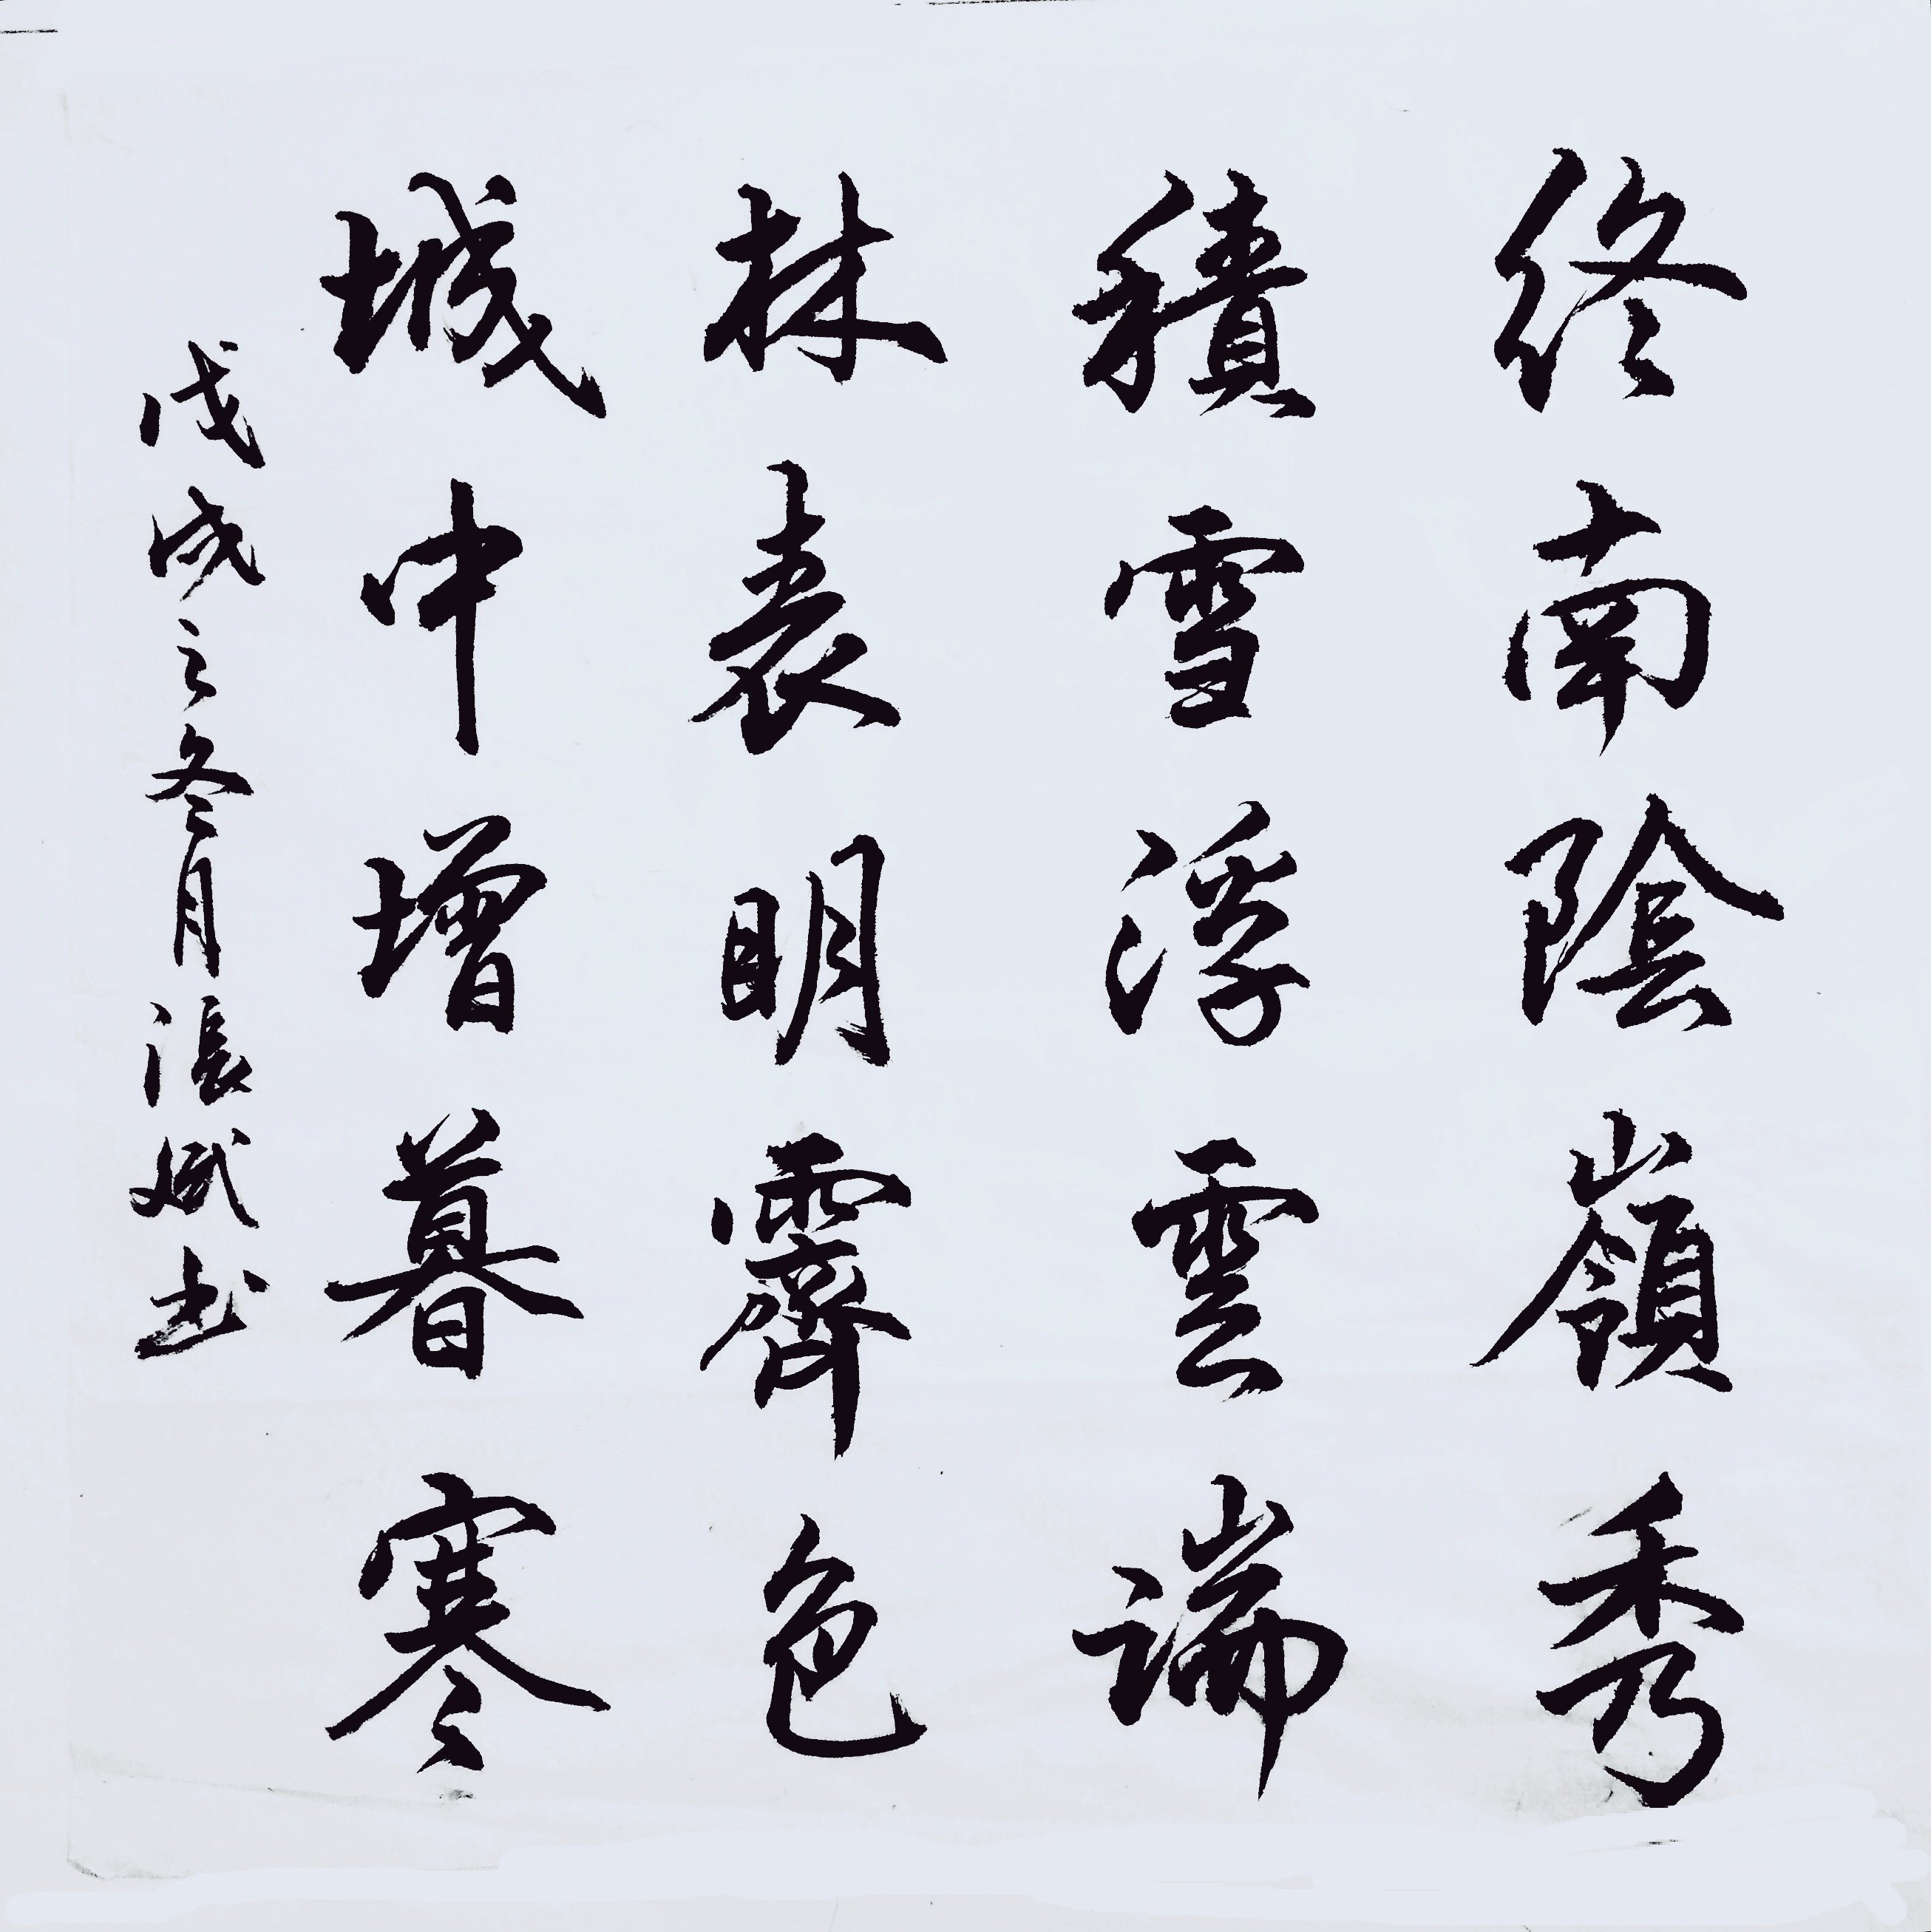 終南陰嶺秀
積雪浮雲端
林表明霽色
城中增暮寒
戊戌之冬月張斌书